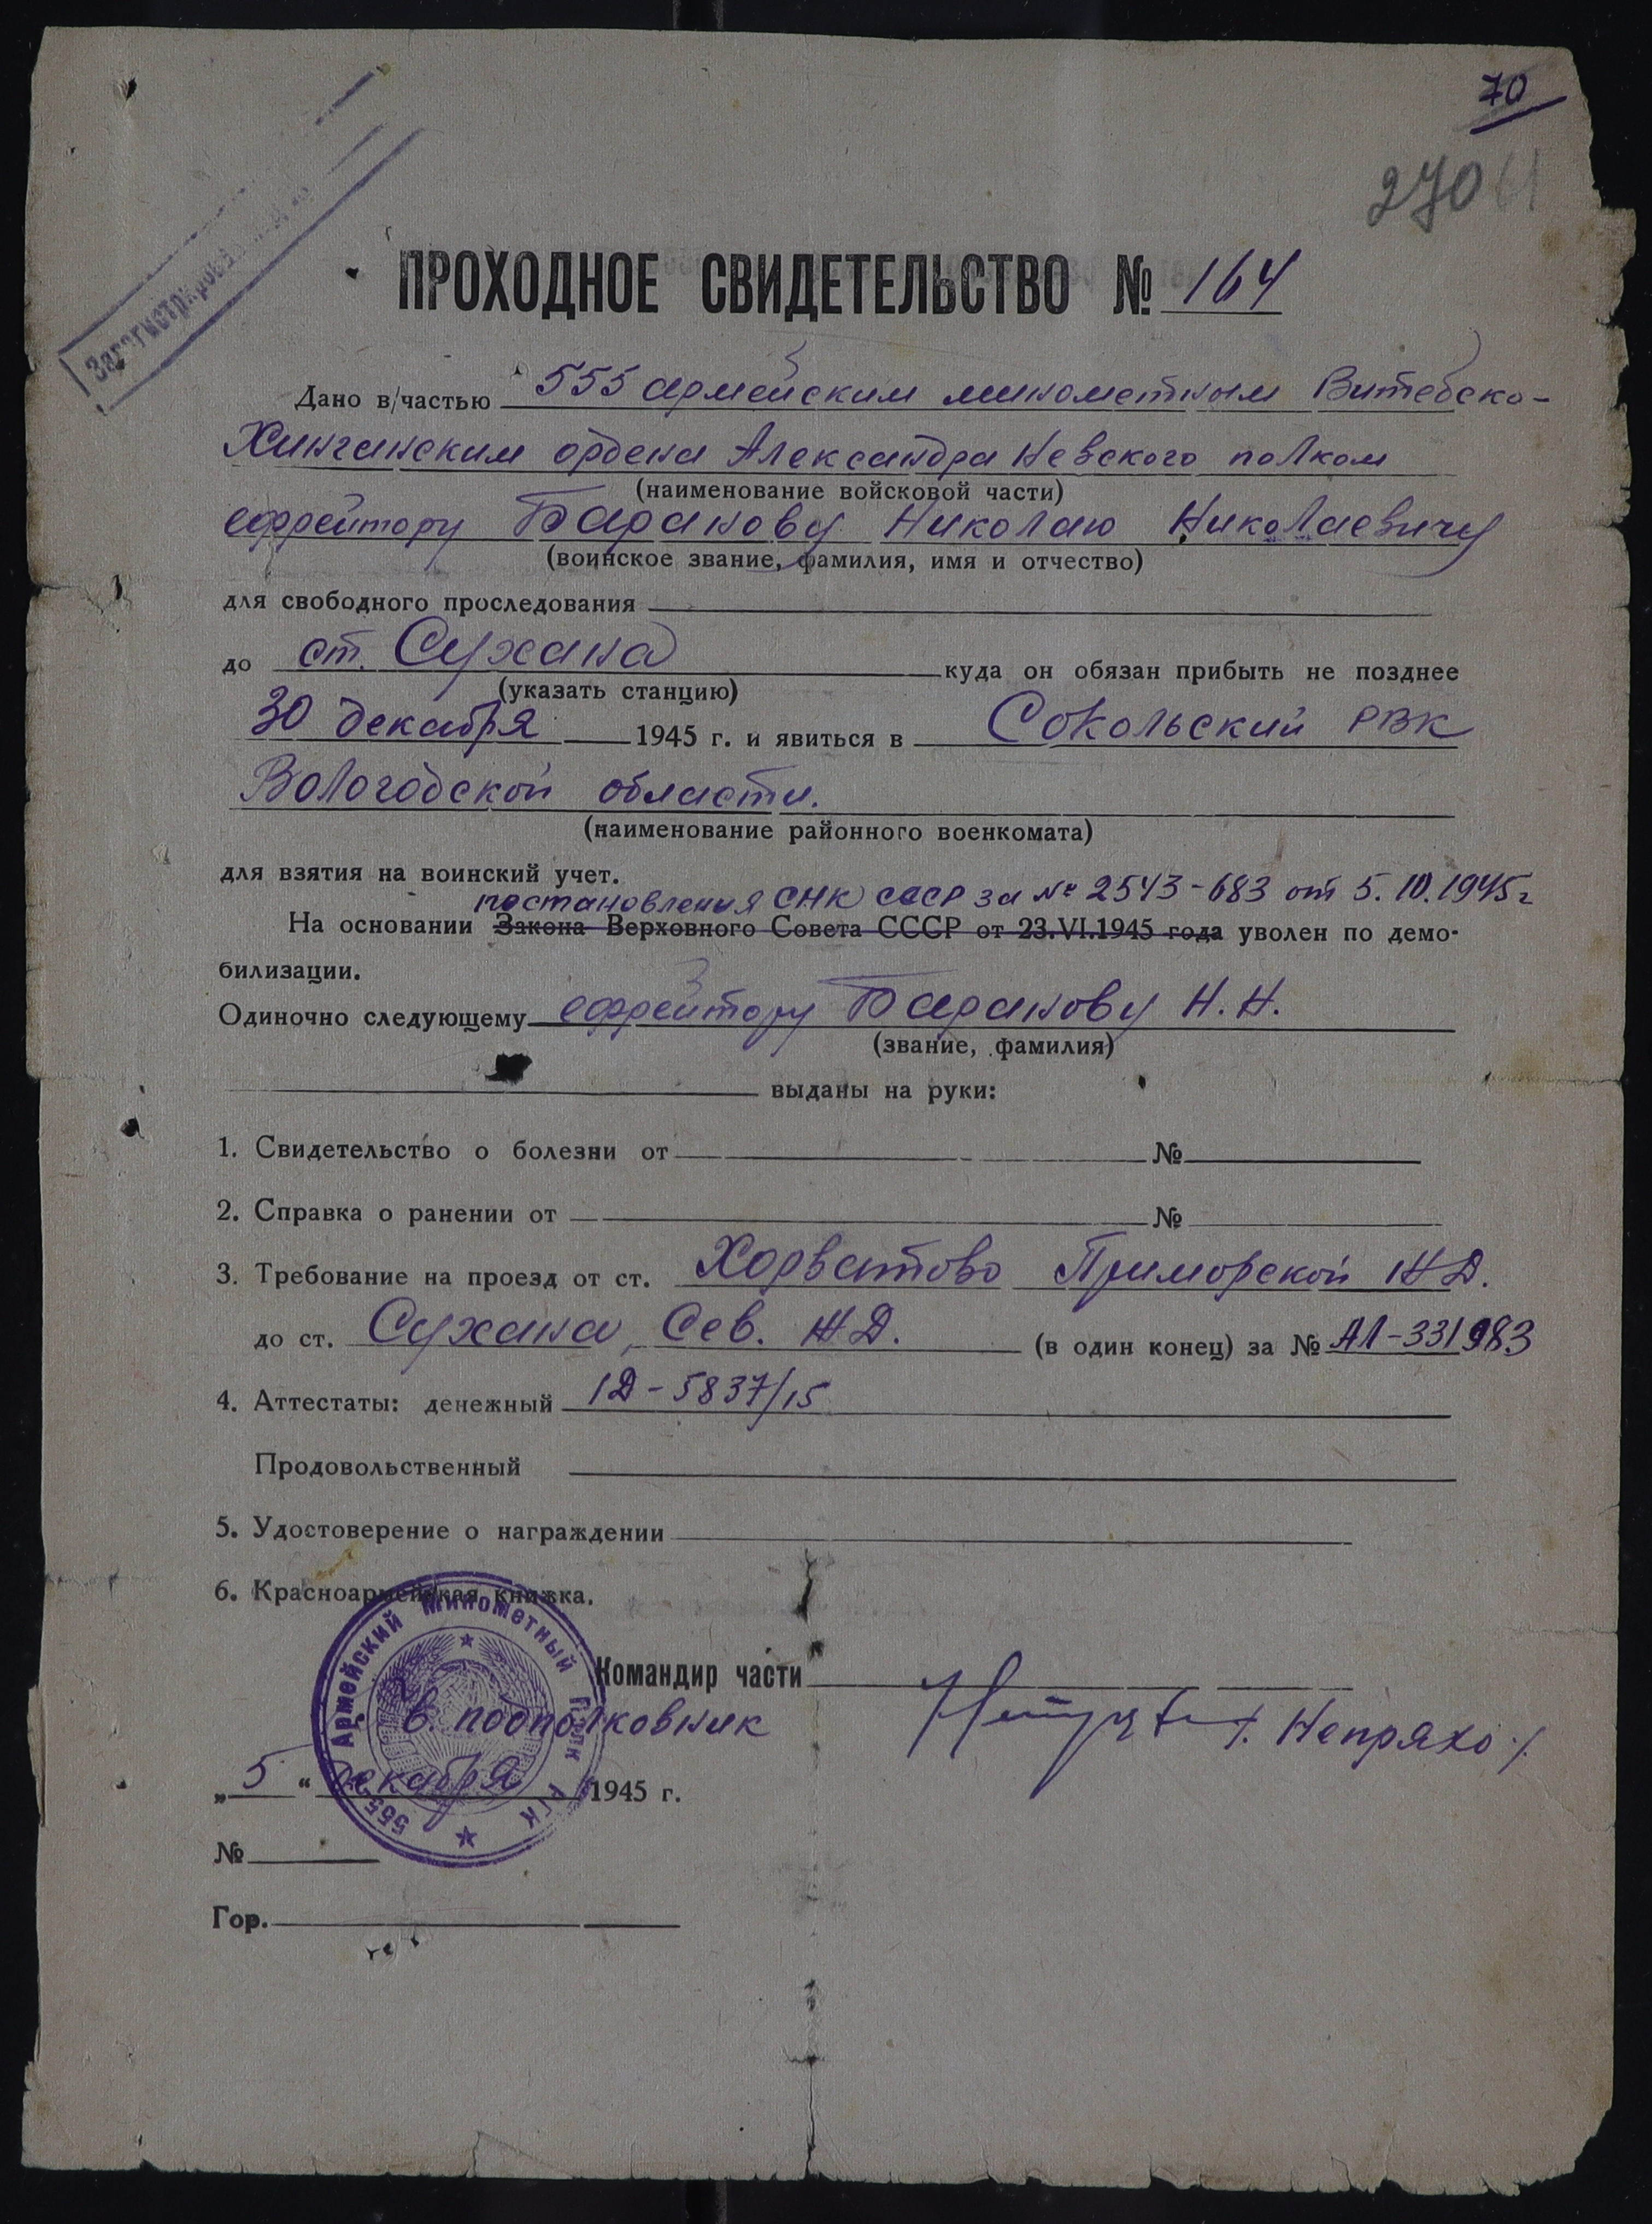 70
270
Зарегистрирова
ПРОХОДНОЕ СВИДЕТЕЛЬСТВО № 164
Дано в/частью 555 армейским минометным Витебско-
Хинганским ордена Александра Невского полком
(наименование войсковой части)
ефрейтору Баранову Николаю Николаевичу
(воинское звание, фамилия, имя и отчество)
для свободного проследования
до ст. Сухана куда он обязан прибыть не позднее
(указать станцию)
30 декабря 1945 г. и явиться в Сокольский РВК
Вологодской области.
(наименование районного военкомата)
для взятия на воинский учет.
постановления СНК СССР за № 2543-683 от 5.10.1945г
На основании Закона Верховного Совета СССР от 23.VI.1945 года уволен по демо-
билизации.
Одиночно следующему ефрейтору Баранову Н.Н.
(звание, фамилия)
выданы на руки:
1. Свидетельство о болезни от №
2. Справка о ранении от №
3. Требование на проезд от ст. Хорватово Приморской ЖД.
до ст. Сухана, Сев. ЖД. (в один конец) за № АЛ-331983
4. Аттестаты: денежный 1Д-5837/15
Продовольственный
5. Удостоверение о награждении
6. Красноармейская книжка.
555 Армейский Минометный Полк РГК
Командир части
Гв. подполковник /. Непряхо ./
„5“ декабря 1945 г.
№
Гор.